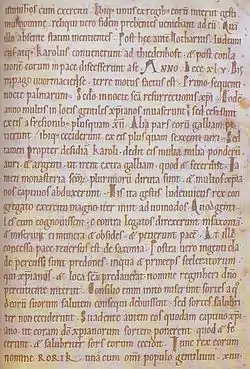 multis cum exercitu. Ibiq; unus ex regib; eorũ interiit gesti
monẽ nomine. reliqui vero fidem prebentes venieba̅t ad eũ
illo absente statim mentientes. Post hęc aute̅ Lotharius. Ludewi
cus atq; Karolus convenerunt ad thiedenhofe. et post conla
tionẽ eorum in pace discesserunt. ANNO. DCCC. XLV. Bis
in pago wormacense. terre motus factus est. Primo sequenti
nocte palmarum. Sedo in nocte sc̅a resurrectionis xp̅i. Eodẽ
anno multis in locis gentiles xp̅ianos invaserunt. sed cesi sunt
ex eis a fresionib; plusquam xii. Alia pars eorũ galliam pe
tierunt. ibiq; ceciderunt ex eis plusquam sexcenti viri. Sed
tamen propter desidiã Karoli. dedit eis multa milia ponderũ
auri. et argenti. ut irent extra galliam. quod et fecerunt. Ta
men monasteria sc̅orũ. plurimorũ diruta sunt. et multos xp̅ia
nos captivos abduxerunt. His ita gestis. ludewicus rex con
gregato exercitu magno. iter iniit ad winodos. Quod genti
les cum cognouissent. e contra legatos direxerunt in saxoniã.
et miserunt ei munera. et obsides. et petierunt pacẽ. At ille
concessa pace. reversus est de saxonia. Postea vero ingenti cla
de percussi sunt predones. in qua et princeps sceleratorum.
qui xp̅ianos. et loca sc̅a predaverat. nomine reginheri. dn̅o
percutiente interiit. Consilio enim inito miserunt sortes. a quo
deorũ suorum salutem consequi debuissent. sed sortes salubri
ter non ceciderunt. Suadente autem eos quodam captivo xp̅i
ano. ut coram dõ xp̅ianorum sortem ponerent. quod et fe
cerunt. et salubriter sors eorum cecidit. Tunc rex eorum
nomine RORIK. una cum omi populo gentilium. xiiii